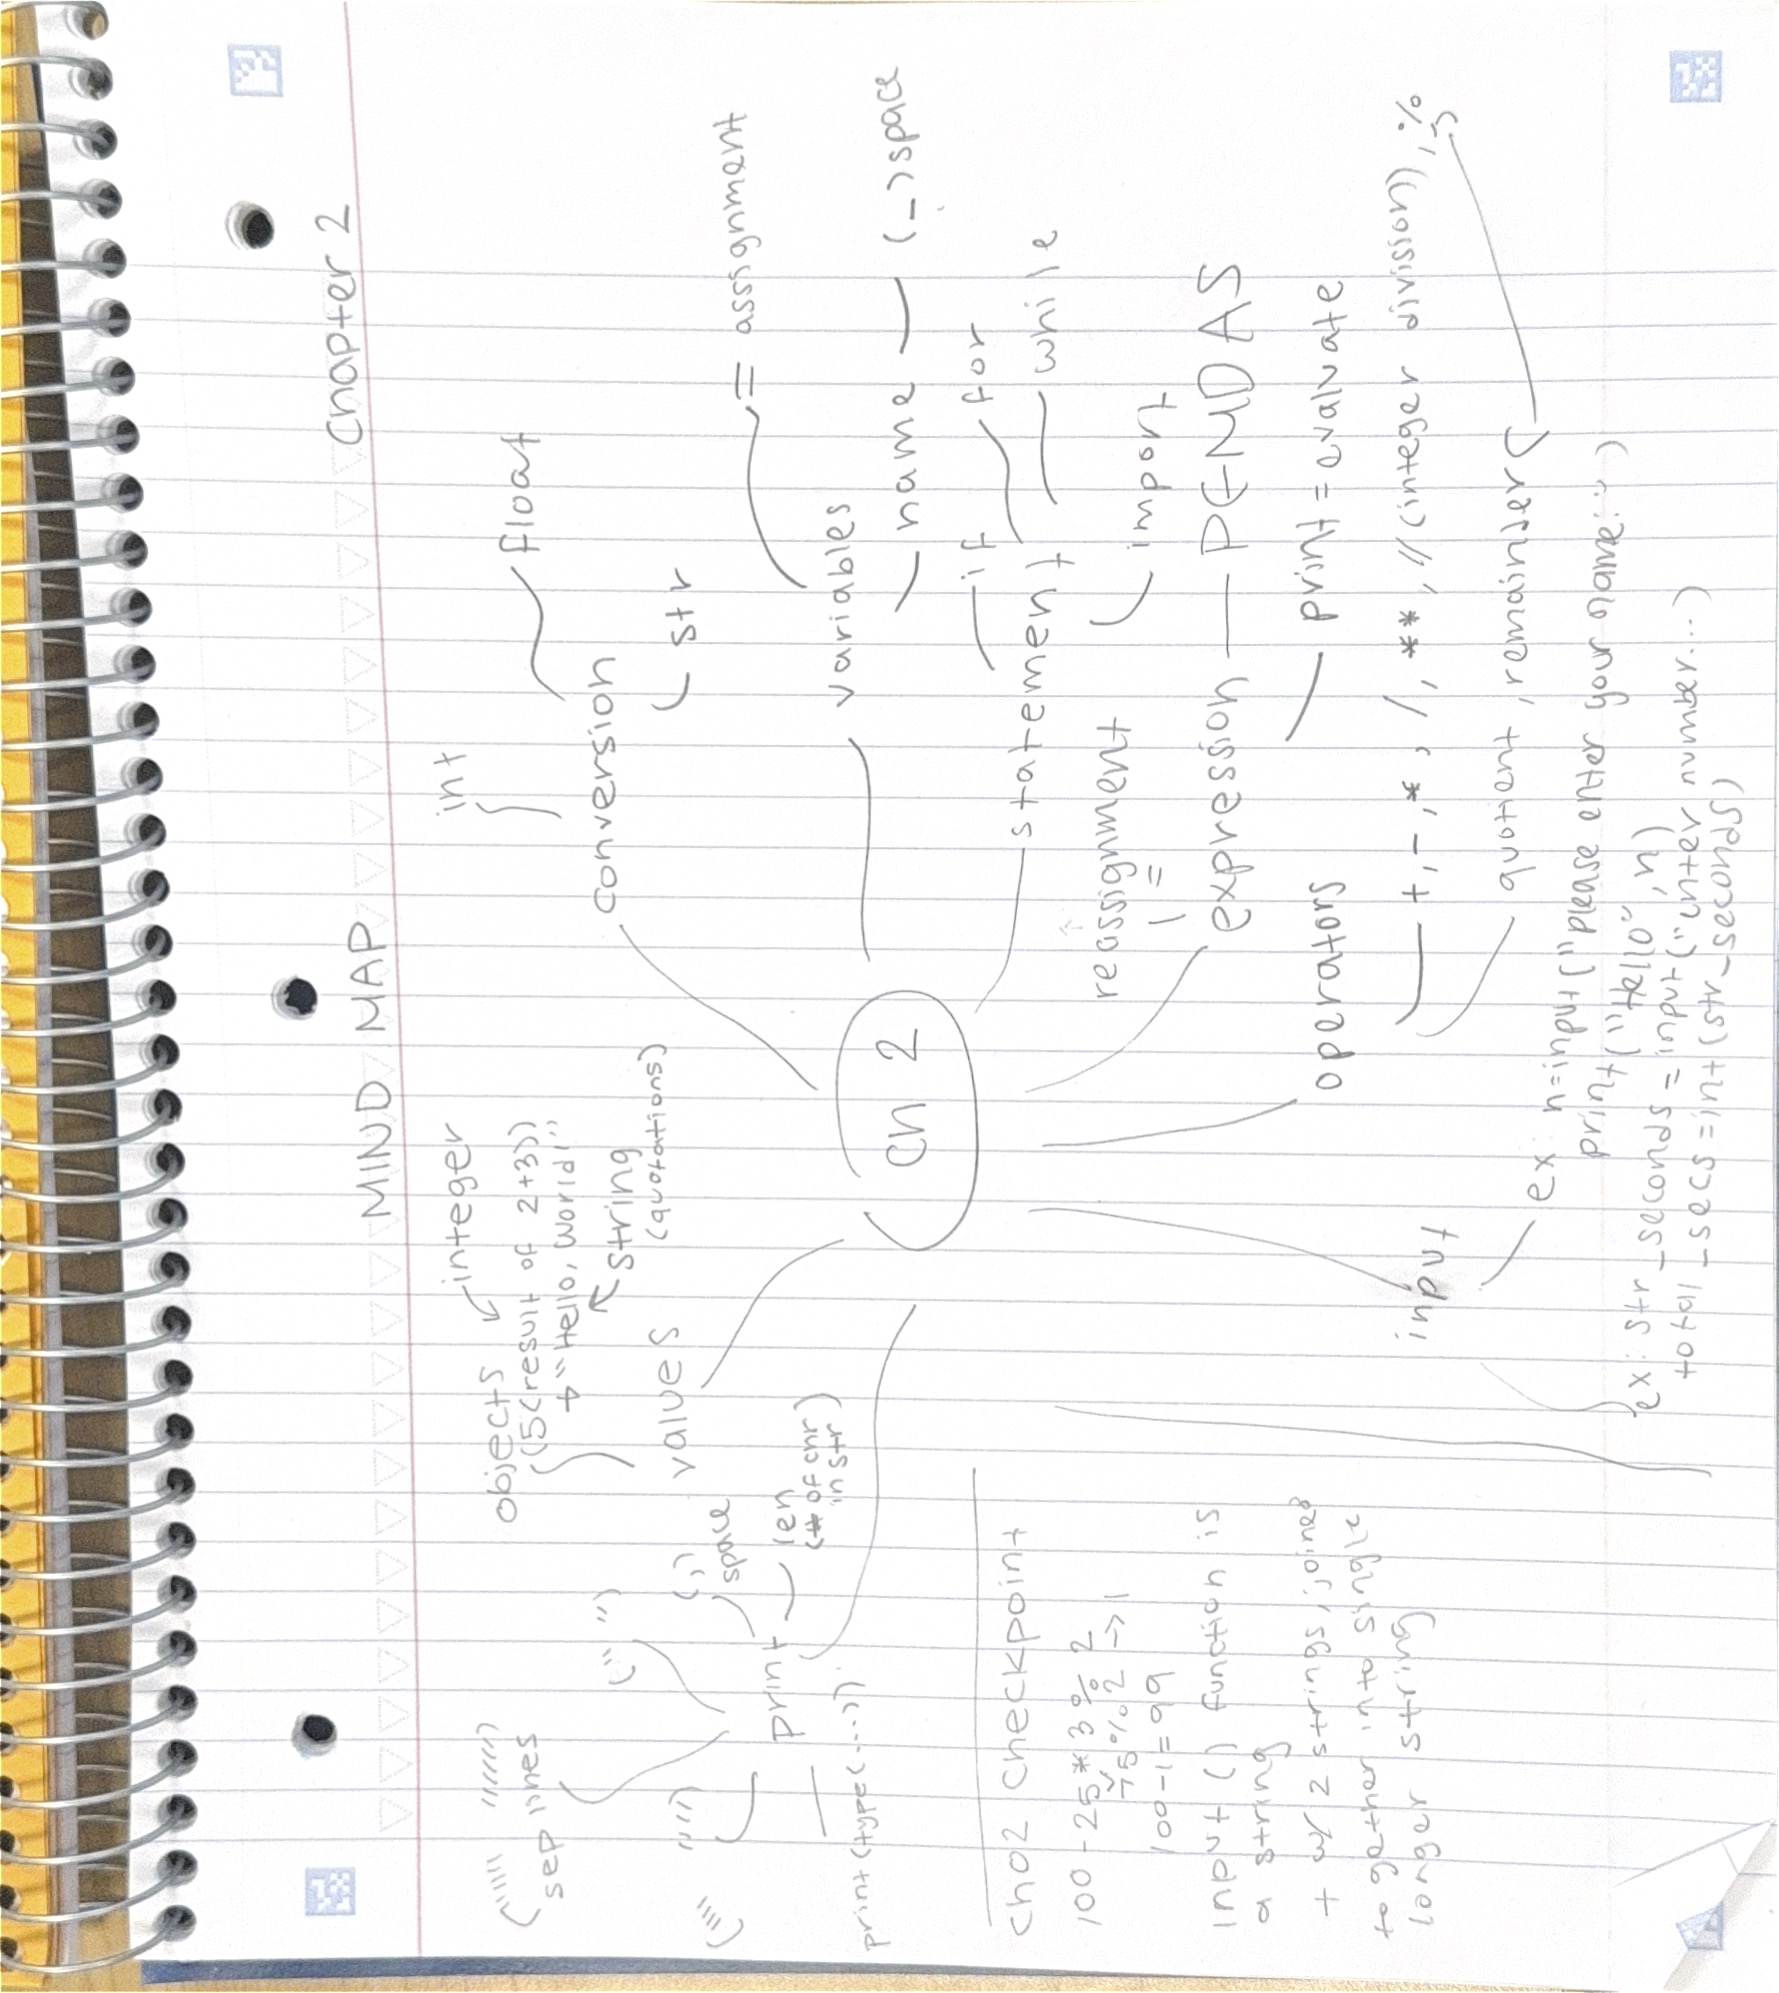 MIND MAP
Chapter 2
objects
integer
(5 (result of 2+3))
"Hello, World!"
string
(quotations)
values
int
conversion
float
str
= assignment
variables
name
(_→) space
if
for
statement
while
import
reassignment
! =
expression
PEMDAS
print = evaluate
operators
+, -, *, /, **, // (integer division), %
quotient, remainder
input
ex: n=input("please enter your name: ")
print("Hello", n)
ex: str_seconds = input("enter number...)
total_secs = int(str_seconds)
Ch 2
(""" """)
sep lines
(" ")
('' '')
(,)
space
print
len
(# of chr
in str)
print(type(....))
Ch02 Checkpoint
100 - 25 * 3 % 2
75 % 2 → 1
100-1=99
input () function is
a string
+ w/ 2 strings, joined
together into single
longer string